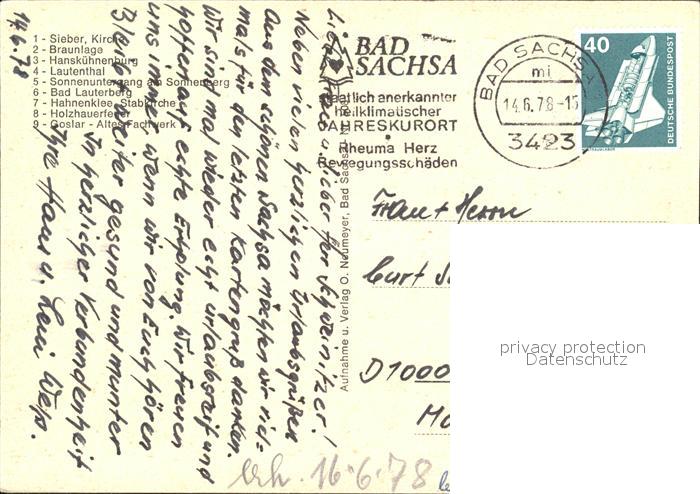 1 - Sieber, Kirche
2 - Braunlage
3 - Hanskühnenburg
4 - Lautenthal
5 - Sonnenuntergang am Sonnenberg
6 - Bad Lauterberg
7 - Hahnenklee, Stabkirche
8 - Holzhauerfenster
9 - Goslar - Altes Fachwerk
14.6.78
lieber Herr Schweinitzer!
Neben vielen herzlichen Urlaubsgrüßen
aus dem schönen Sachsa möchten wir viel-
mals für den letzten Kartengruß danken.
Wir sind mal wieder echt urlaubsreif und
hoffen auf echte Erholung. Wir freuen
uns immer wenn wir von Euch hören
Bleibt weiter gesund und munter
In herzlicher Verbundenheit
Ihre Hans u. Leni
Aufnahme u. Verlag O. Neumeyer, Bad Sachsa
BAD
SACHSA
Staatlich anerkannter
Heilklimatischer
JAHRESKURORT
Rheuma Herz
Bewegungsschäden
BAD SACHSA
mi
14.6.78-15
3423
40
DEUTSCHE BUNDESPOST
Frau + Herrn
Curt
D1000
erh. 16.6.78
privacy protection
Datenschutz